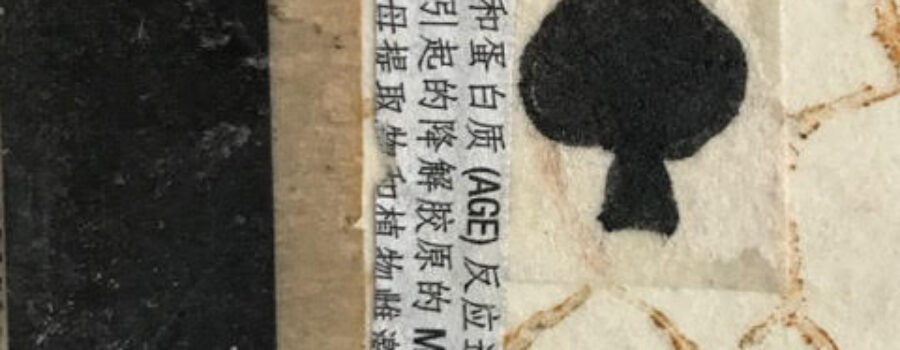 和蛋白质 (AGE) 反应
引起的降解胶原的 M
母提取物和植物雌激